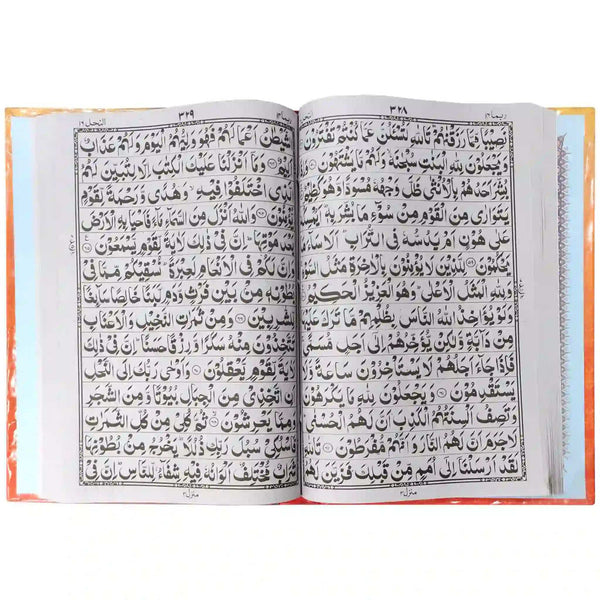 ربما ١٤
٣٢٨
نَصِيْبًا مِّمَّا رَزَقْنٰهُمْ تَاللّٰهِ لَتُسْـَٔلُنَّ عَمَّا كُنْتُمْ تَفْتَرُوْنَ
وَيَجْعَلُوْنَ لِلّٰهِ الْبَنٰتِ سُبْحٰنَهٗ وَلَهُمْ مَّا يَشْتَهُوْنَ
بُشِّرَ اَحَدُهُمْ بِالْاُنْثٰى ظَلَّ وَجْهُهٗ مُسْوَدًّا وَّهُوَ
يَتَوَارٰى مِنَ الْقَوْمِ مِنْ سُوْٓءِ مَا بُشِّرَ بِهٖ
عَلٰى هُوْنٍ اَمْ يَدُسُّهٗ فِى التُّرَابِ اَلَا سَآءَ
يَحْكُمُوْنَ لِلَّذِيْنَ لَا يُؤْمِنُوْنَ بِالْاٰخِرَةِ مَثَلُ السَّوْءِ
وَلِلّٰهِ الْمَثَلُ الْاَعْلٰى وَهُوَ الْعَزِيْزُ الْحَكِيْمُ
يُؤَاخِذُ اللّٰهُ النَّاسَ بِظُلْمِهِمْ مَّا تَرَكَ عَلَيْهَا
مِنْ دَآبَّةٍ وَّلٰكِنْ يُّؤَخِّرُهُمْ اِلٰٓى اَجَلٍ مُّسَمًّى
فَاِذَا جَآءَ اَجَلُهُمْ لَا يَسْتَاْخِرُوْنَ سَاعَةً
يَسْتَقْدِمُوْنَ وَيَجْعَلُوْنَ لِلّٰهِ مَا يَكْرَهُوْنَ
وَتَصِفُ اَلْسِنَتُهُمُ الْكَذِبَ اَنَّ لَهُمُ الْحُسْنٰى
لَا جَرَمَ اَنَّ لَهُمُ النَّارَ وَاَنَّهُمْ مُّفْرَطُوْنَ تَاللّٰهِ
لَقَدْ اَرْسَلْنَآ اِلٰٓى اُمَمٍ مِّنْ قَبْلِكَ فَزَيَّنَ لَهُمُ
منزل ٣
٣٢٩
النحل ١٦
الشَّيْطٰنُ اَعْمَالَهُمْ فَهُوَ وَلِيُّهُمُ الْيَوْمَ وَلَهُمْ عَذَابٌ
اَلِيْمٌ وَمَآ اَنْزَلْنَا عَلَيْكَ الْكِتٰبَ اِلَّا لِتُبَيِّنَ لَهُمُ
الَّذِى اخْتَلَفُوْا فِيْهِ وَهُدًى وَّرَحْمَةً لِّقَوْمٍ
يُّؤْمِنُوْنَ وَاللّٰهُ اَنْزَلَ مِنَ السَّمَآءِ مَآءً فَاَحْيَا بِهِ الْاَرْضَ
بَعْدَ مَوْتِهَا اِنَّ فِيْ ذٰلِكَ لَاٰيَةً لِّقَوْمٍ يَّسْمَعُوْنَ
وَاِنَّ لَكُمْ فِى الْاَنْعَامِ لَعِبْرَةً نُسْقِيْكُمْ مِّمَّا فِيْ
بُطُوْنِهٖ مِنْ بَيْنِ فَرْثٍ وَّدَمٍ لَّبَنًا خَالِصًا سَآئِغًا
لِّلشّٰرِبِيْنَ وَمِنْ ثَمَرٰتِ النَّخِيْلِ وَالْاَعْنَابِ
تَتَّخِذُوْنَ مِنْهُ سَكَرًا وَّرِزْقًا حَسَنًا اِنَّ فِيْ ذٰلِكَ
لَاٰيَةً لِّقَوْمٍ يَّعْقِلُوْنَ وَاَوْحٰى رَبُّكَ اِلَى النَّحْلِ
اَنِ اتَّخِذِيْ مِنَ الْجِبَالِ بُيُوْتًا وَّمِنَ الشَّجَرِ
وَمِمَّا يَعْرِشُوْنَ ثُمَّ كُلِيْ مِنْ كُلِّ الثَّمَرٰتِ
فَاسْلُكِيْ سُبُلَ رَبِّكِ ذُلُلًا يَخْرُجُ مِنْ بُطُوْنِهَا
شَرَابٌ مُّخْتَلِفٌ اَلْوَانُهٗ فِيْهِ شِفَآءٌ لِّلنَّاسِ اِنَّ فِيْ
منزل ٣